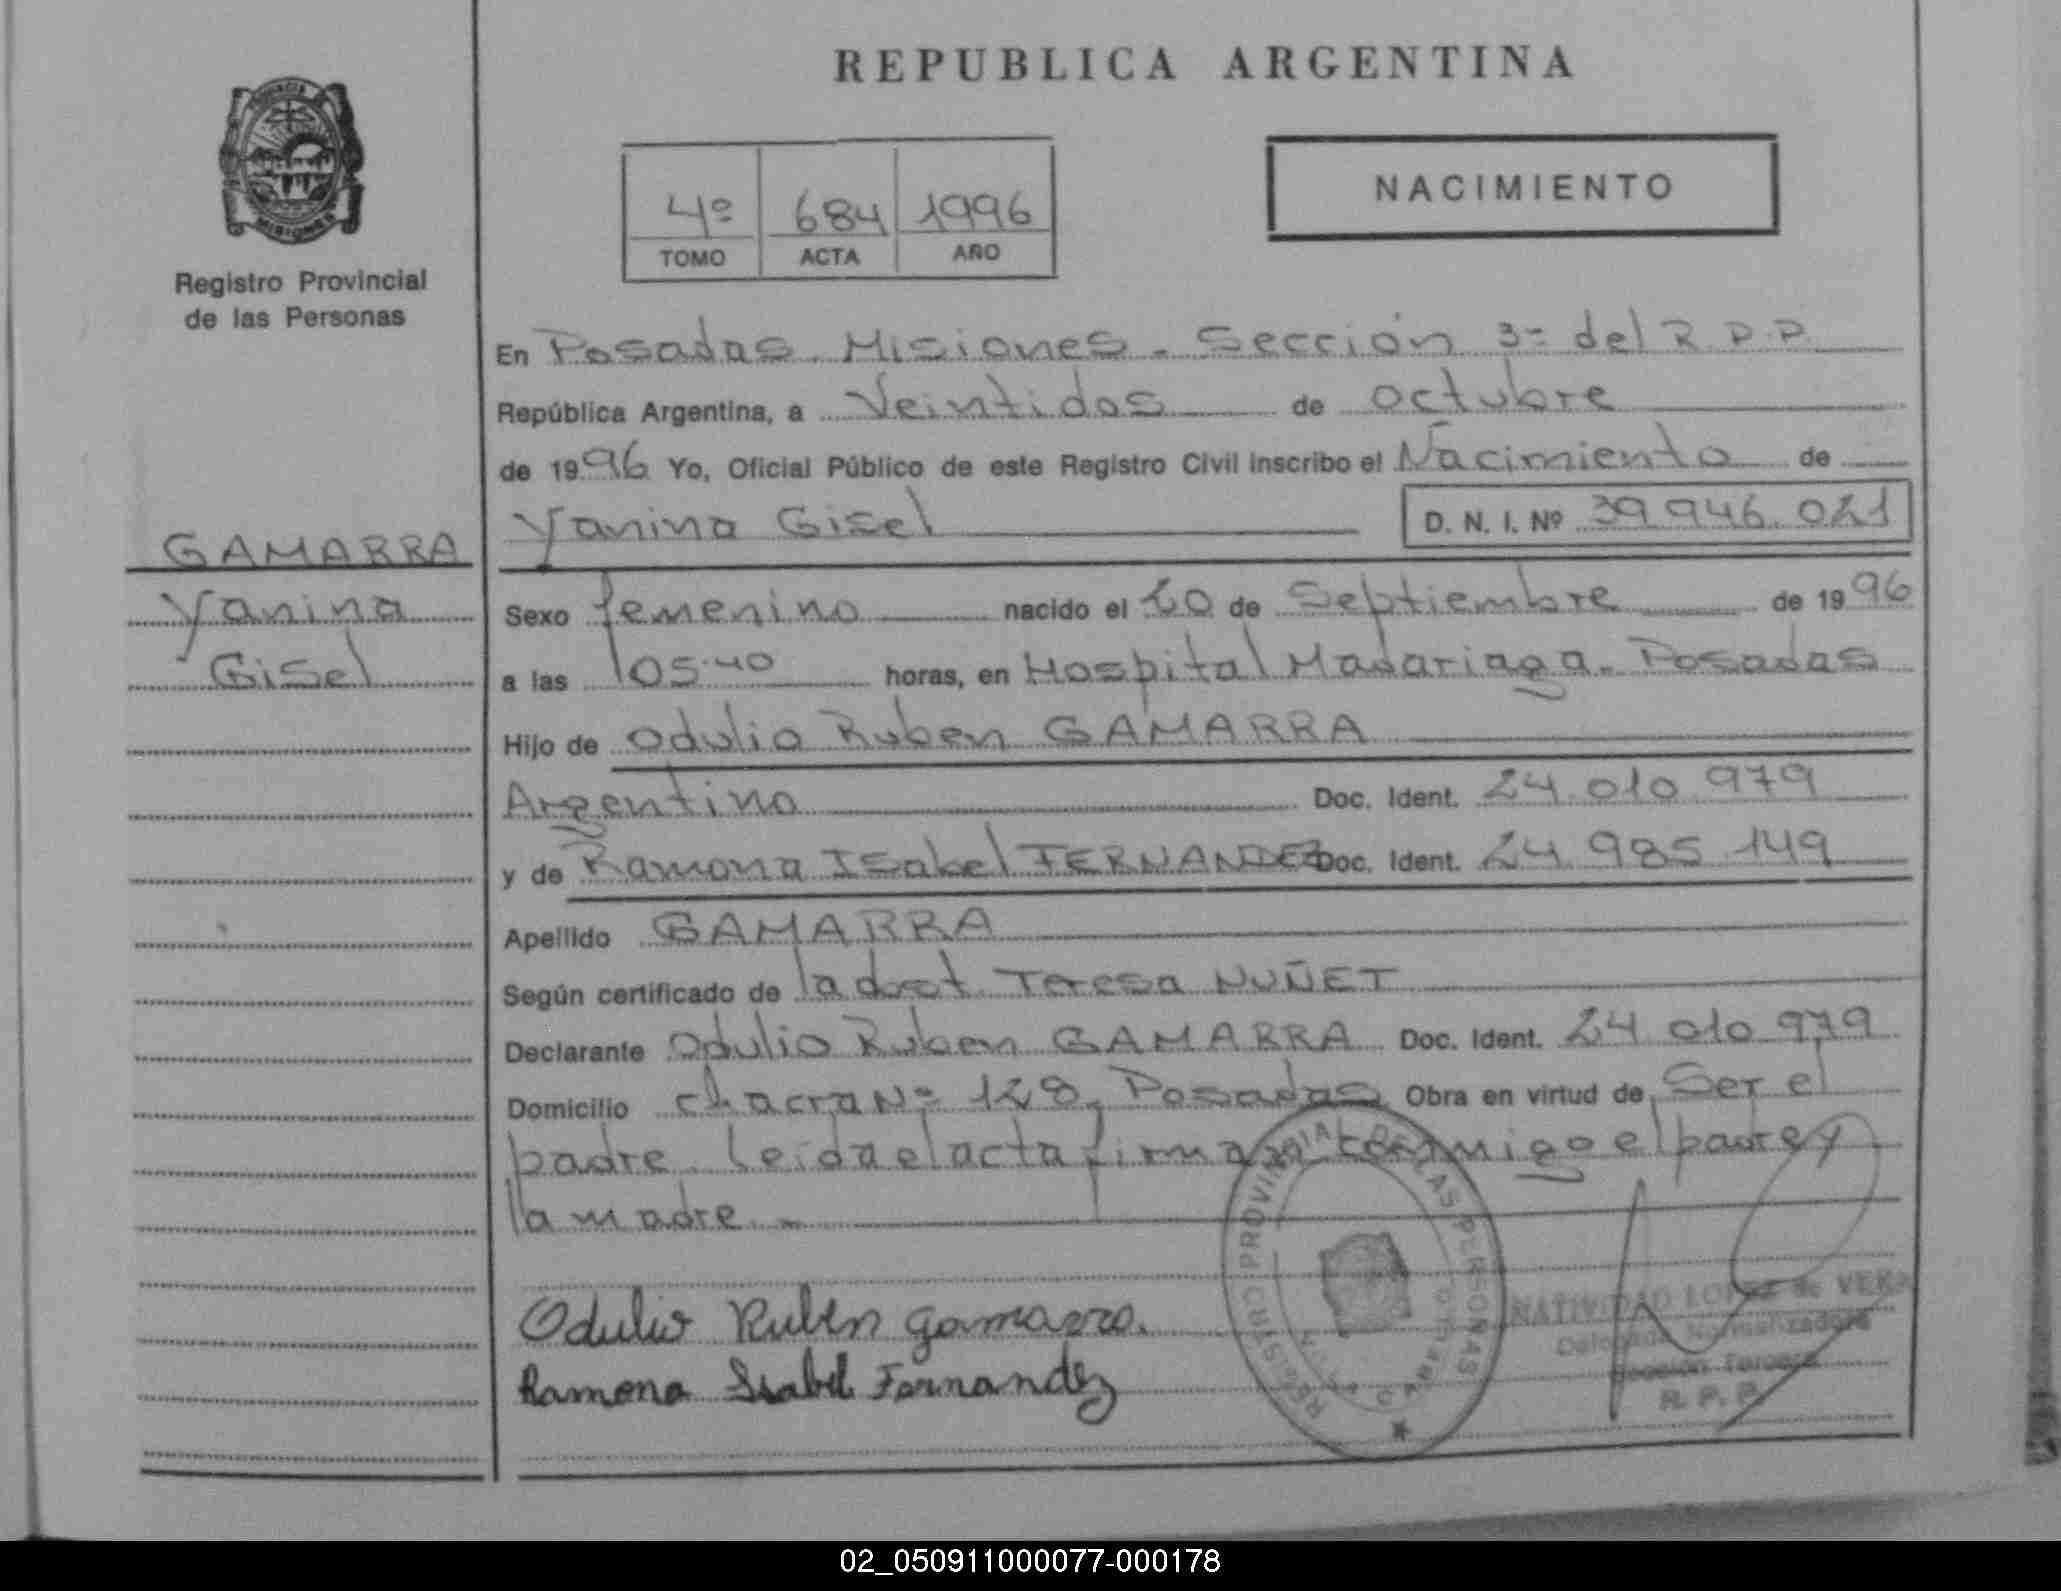 REPUBLICA ARGENTINA
PROVINCIA DE
MISIONES
Registro Provincial
de las Personas
4º 684 1996
TOMO ACTA AÑO
NACIMIENTO
En Posadas Misiones - Sección 3= del R.P.P.
República Argentina, a Veintidos de octubre
de 1996 Yo, Oficial Público de este Registro Civil inscribo el Nacimiento de
Yanina Gisel D. N. I. Nº 39.946.021
GAMARRA
Yanina
Gisel
Sexo femenino nacido el 20 de Septiembre de 1996
a las 05·40 horas, en Hospital Madariaga - Posadas
Hijo de Odulio Ruben GAMARRA
Argentino Doc. Ident. 24.010.979
y de Ramona Isabel FERNANDEZ Doc. Ident. 24.985.149
Apellido GAMARRA
Según certificado de la doct. Teresa NUÑET
Declarante Odulio Ruben GAMARRA Doc. Ident. 24.010.979
Domicilio chacra Nº 128, Posadas Obra en virtud de Ser el
padre. leida el acta firman conmigo el padre y
la madre.
Odulio Ruben gamarra.
Ramona Isabel Fernandez
REGISTRO PROVINCIAL DE LAS PERSONAS
NATIVIDAD LOPEZ de VERA
Delegada Normalizadora
Sección Tercera
R. P. P.
02_050911000077-000178